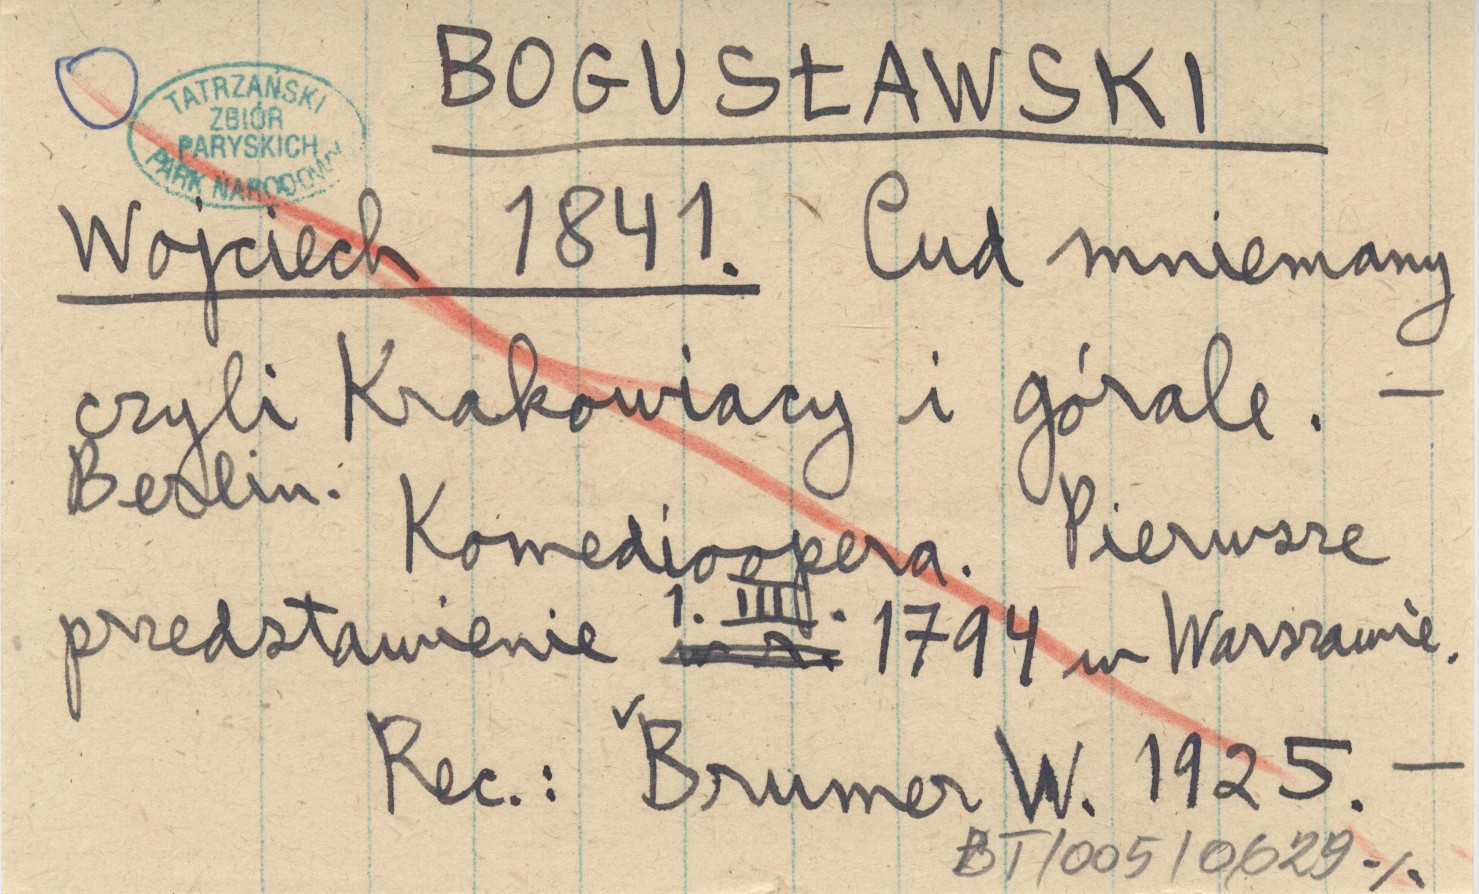 BOGUSŁAWSKI
TATRZAŃSKI
ZBIÓR
PARYSKICH
PARK NARODOWY
Wojciech 1841. Cud mniemany
czyli Krakowiacy i górale. —
Berlin.
Komedioopera. Pierwsze
przedstawienie 1. III. 1794 w Warszawie.
Rec.: ✓Brumer W. 1925. —
BT/005/0629 ./.